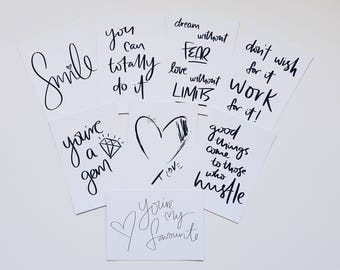 Smile
you
can
totally
do it
dream without
FEAR
love without
LIMITS
don't wish
for it
WORK
for it!
you're
a
gem
LOVE
good
things
come
to those
who
hustle
You're
my
favourite